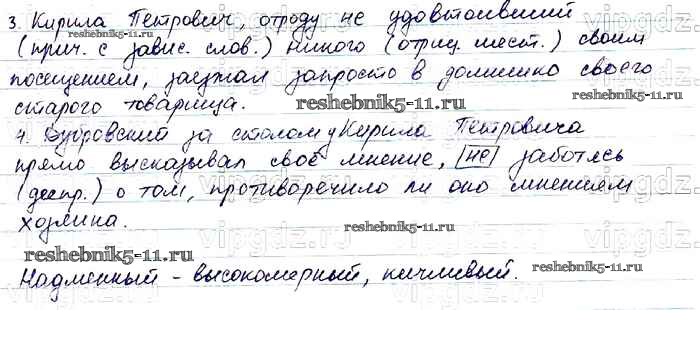 3. Кирила Петрович, отроду не удостоивший
(прич. с завис. слов.) никого (отриц. мест.) своим
посещением, заезжал запросто в домишко своего
старого товарища.
reshebnik5-11.ru
reshebnik5-11.ru
4. Дубровский за столом у Кирила Петровича
прямо высказывал своё мнение, не заботясь
(деепр.) о том, противоречило ли оно мнениям
хозяина.
reshebnik5-11.ru
reshebnik5-11.ru
Надменный - высокомерный, кичливый.
reshebnik5-11.ru
vipgdz.ru